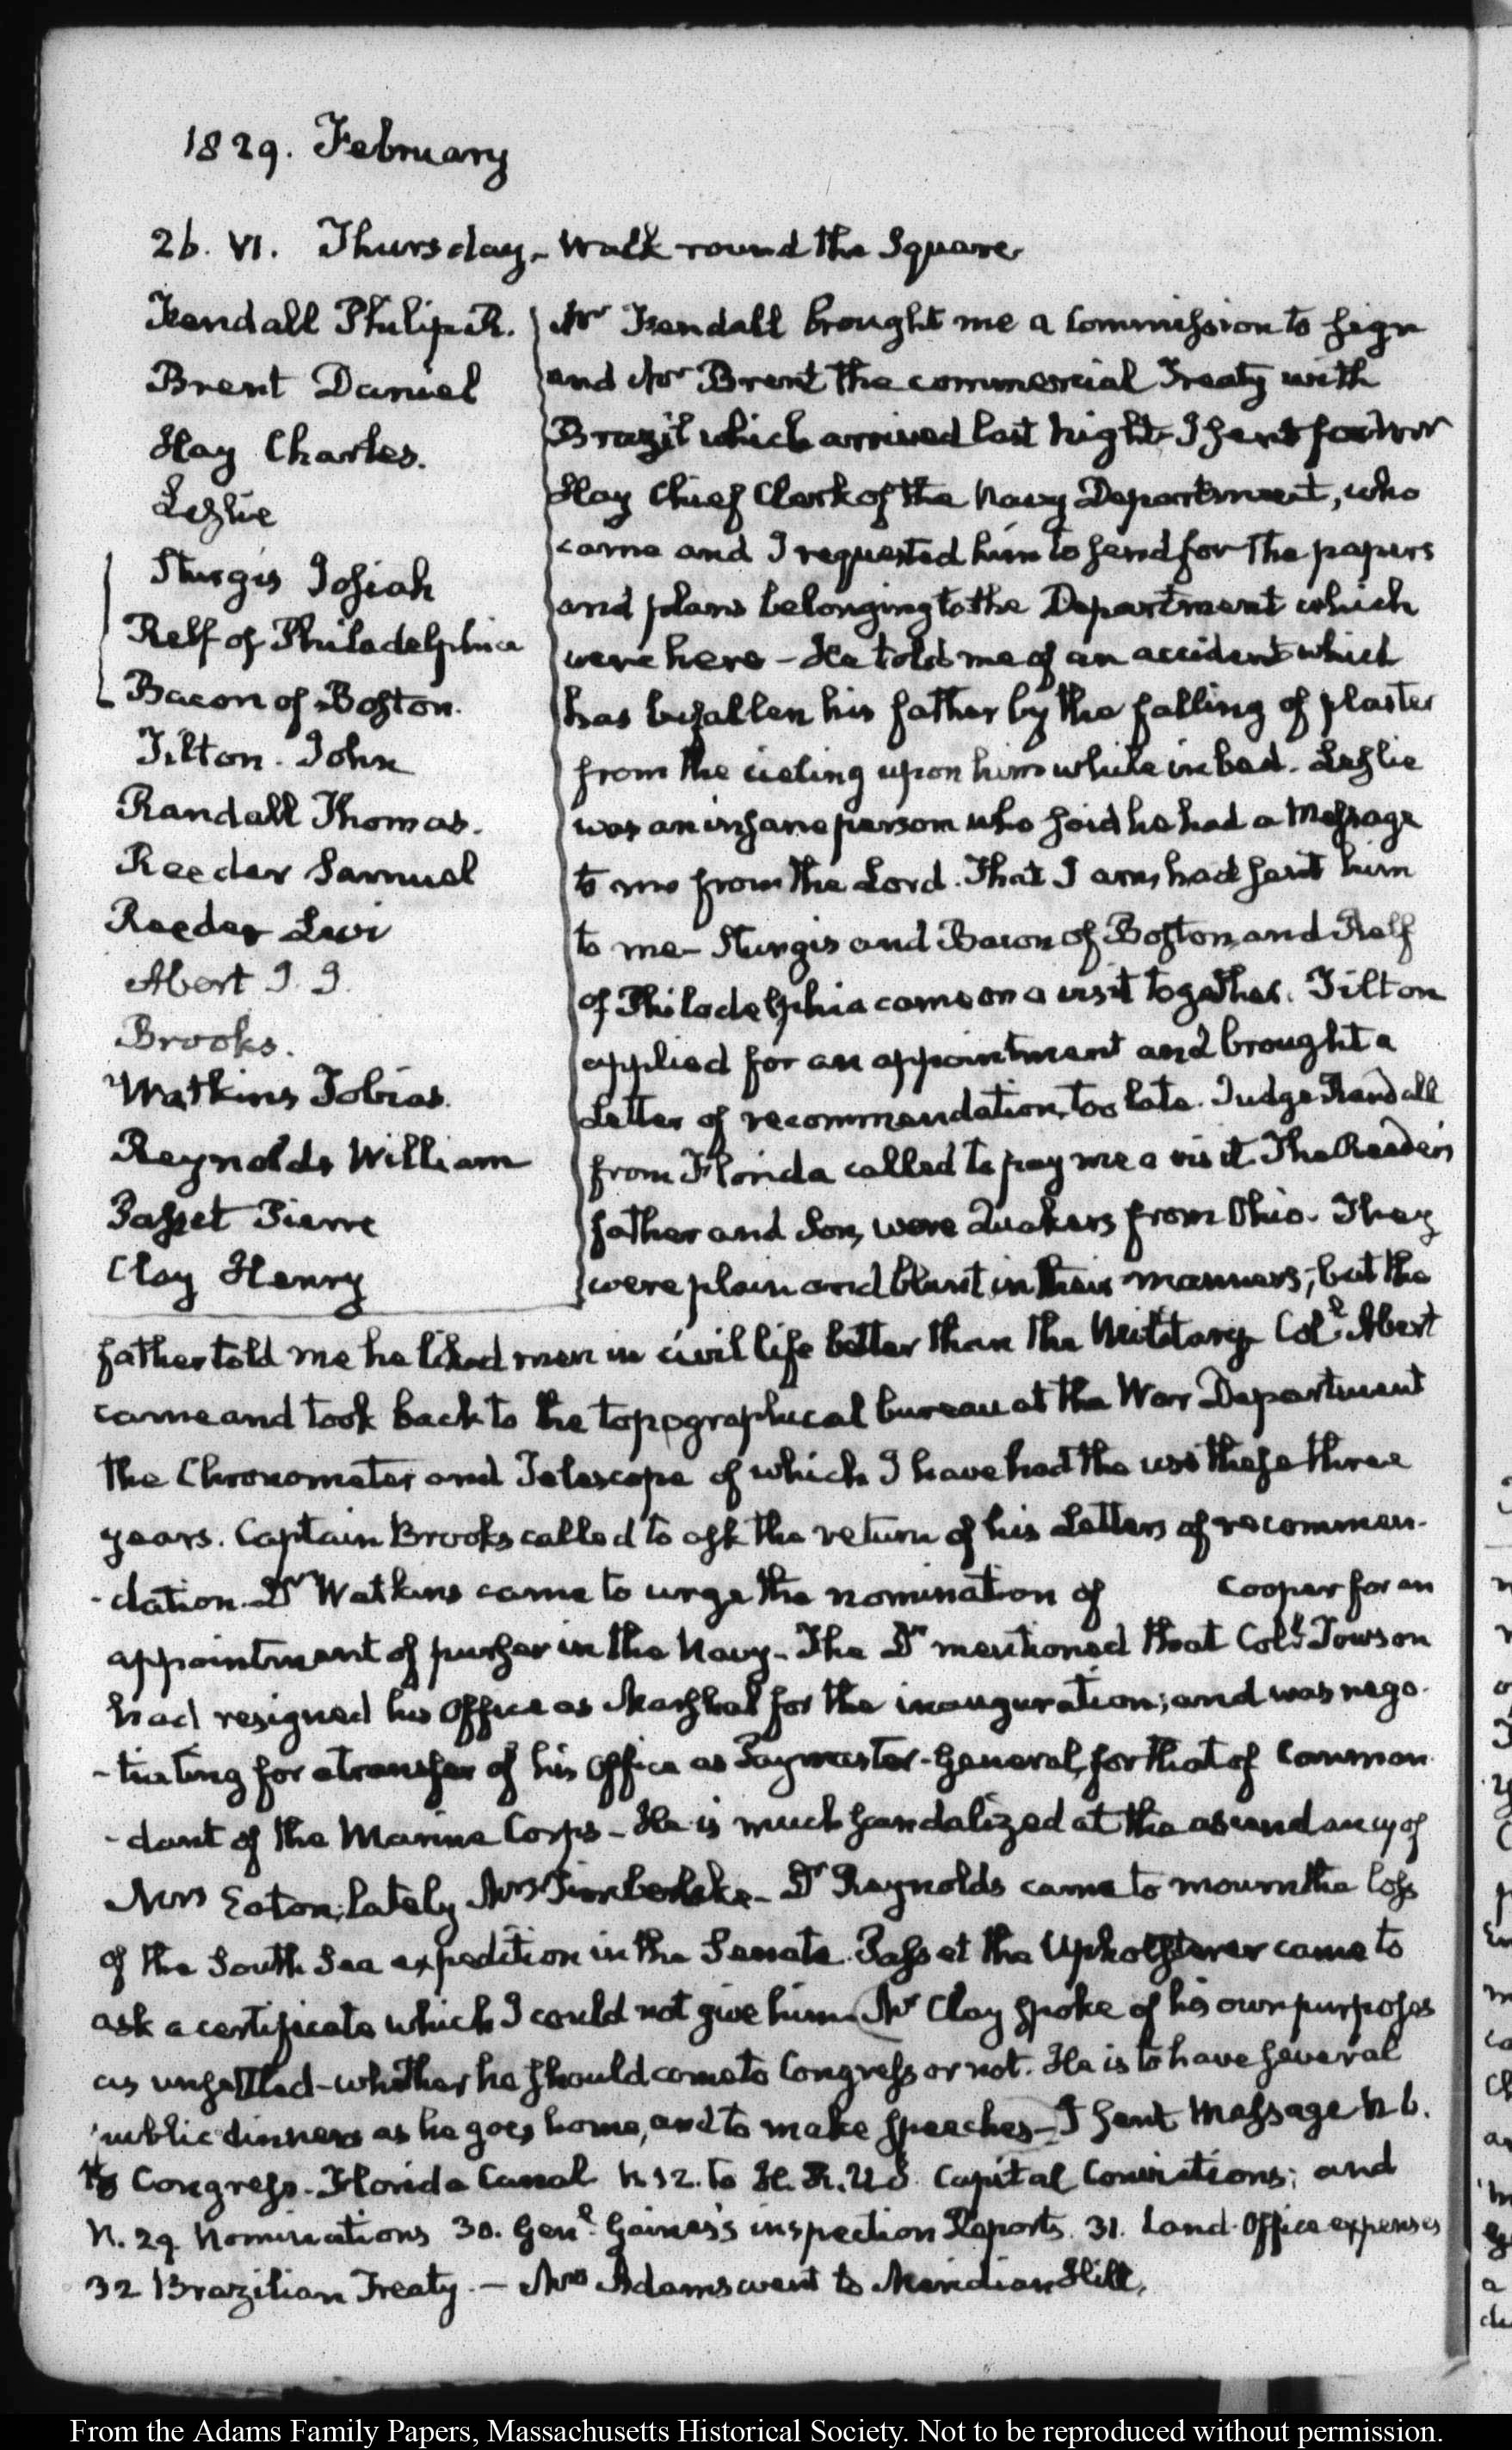 1829. February
26. VI. Thursday. Walk round the Square
Kendall Philip R.
Brent Daniel
Hay Charles.
Leslie
Sturgis Josiah
Relf of Philadelphia
Bacon of Boston.
Tilton. John
Randall Thomas.
Reeder Samuel
Reeder Levi
Abert J. J.
Brooks.
Watkins Tobias.
Reynolds William
Passet Pierre
Clay Henry
Mr Kendall brought me a Commission to sign
and Mr Brent the commercial Treaty with
Brazil which arrived last Night. I sent for Mr
Hay Chief Clerk of the Navy Department, who
came and I requested him to send for the papers
and plans belonging to the Department which
were here – He told me of an accident which
has befallen his father by the falling of plaster
from the cieling upon him while in bed. Leslie
was an insane person who said he had a Message
to me from the Lord. That I am, had sent him
to me – Sturgis and Bacon of Boston, and Relf
of Philadelphia came on a visit together. Tilton
applied for an appointment and brought a
Letter of recommendation, too late. Judge Randall
from Florida called to pay me a visit. The Reeder's
father and Son, were Quakers from Ohio. They
were plain and blunt in their manners; but the
father told me he liked men in civil life better than the Military. Coll. Abert
came and took back to the topographical bureau at the War Department
the Chronometer and Telescope of which I have had the use these three
years. Captain Brooks called to ask the return of his Letters of recommen-
-dation. Dr Watkins came to urge the nomination of Cooper for an
appointment of purser in the Navy – The Dr mentioned that Coll. Towson
had resigned his Office as Marshal for the inauguration; and was nego-
-tiating for a transfer of his Office as Paymaster-General, for that of Comman-
-dant of the Marine Corps – He is much scandalized at the ascendancy of
Mrs Eaton, lately Mrs Timberlake – Dr Reynolds came to mourn the loss
of the South Sea expedition in the Senate. Passet the Upholsterer came to
ask a certificate which I could not give him. Mr Clay spoke of his own purposes
as unsettled – whether he should come to Congress or not. He is to have several
public dinners as he goes home, and to make speeches – I sent Message N 6.
to Congress. Florida Canal N 12. to H. R. U S. Capital Convictions; and
N. 29. Nominations 30. Genl. Gaines's inspection Reports. 31. Land-Office expenses
32 Brazilian Treaty. – Mrs Adams went to Meridian Hill.
From the Adams Family Papers, Massachusetts Historical Society. Not to be reproduced without permission.